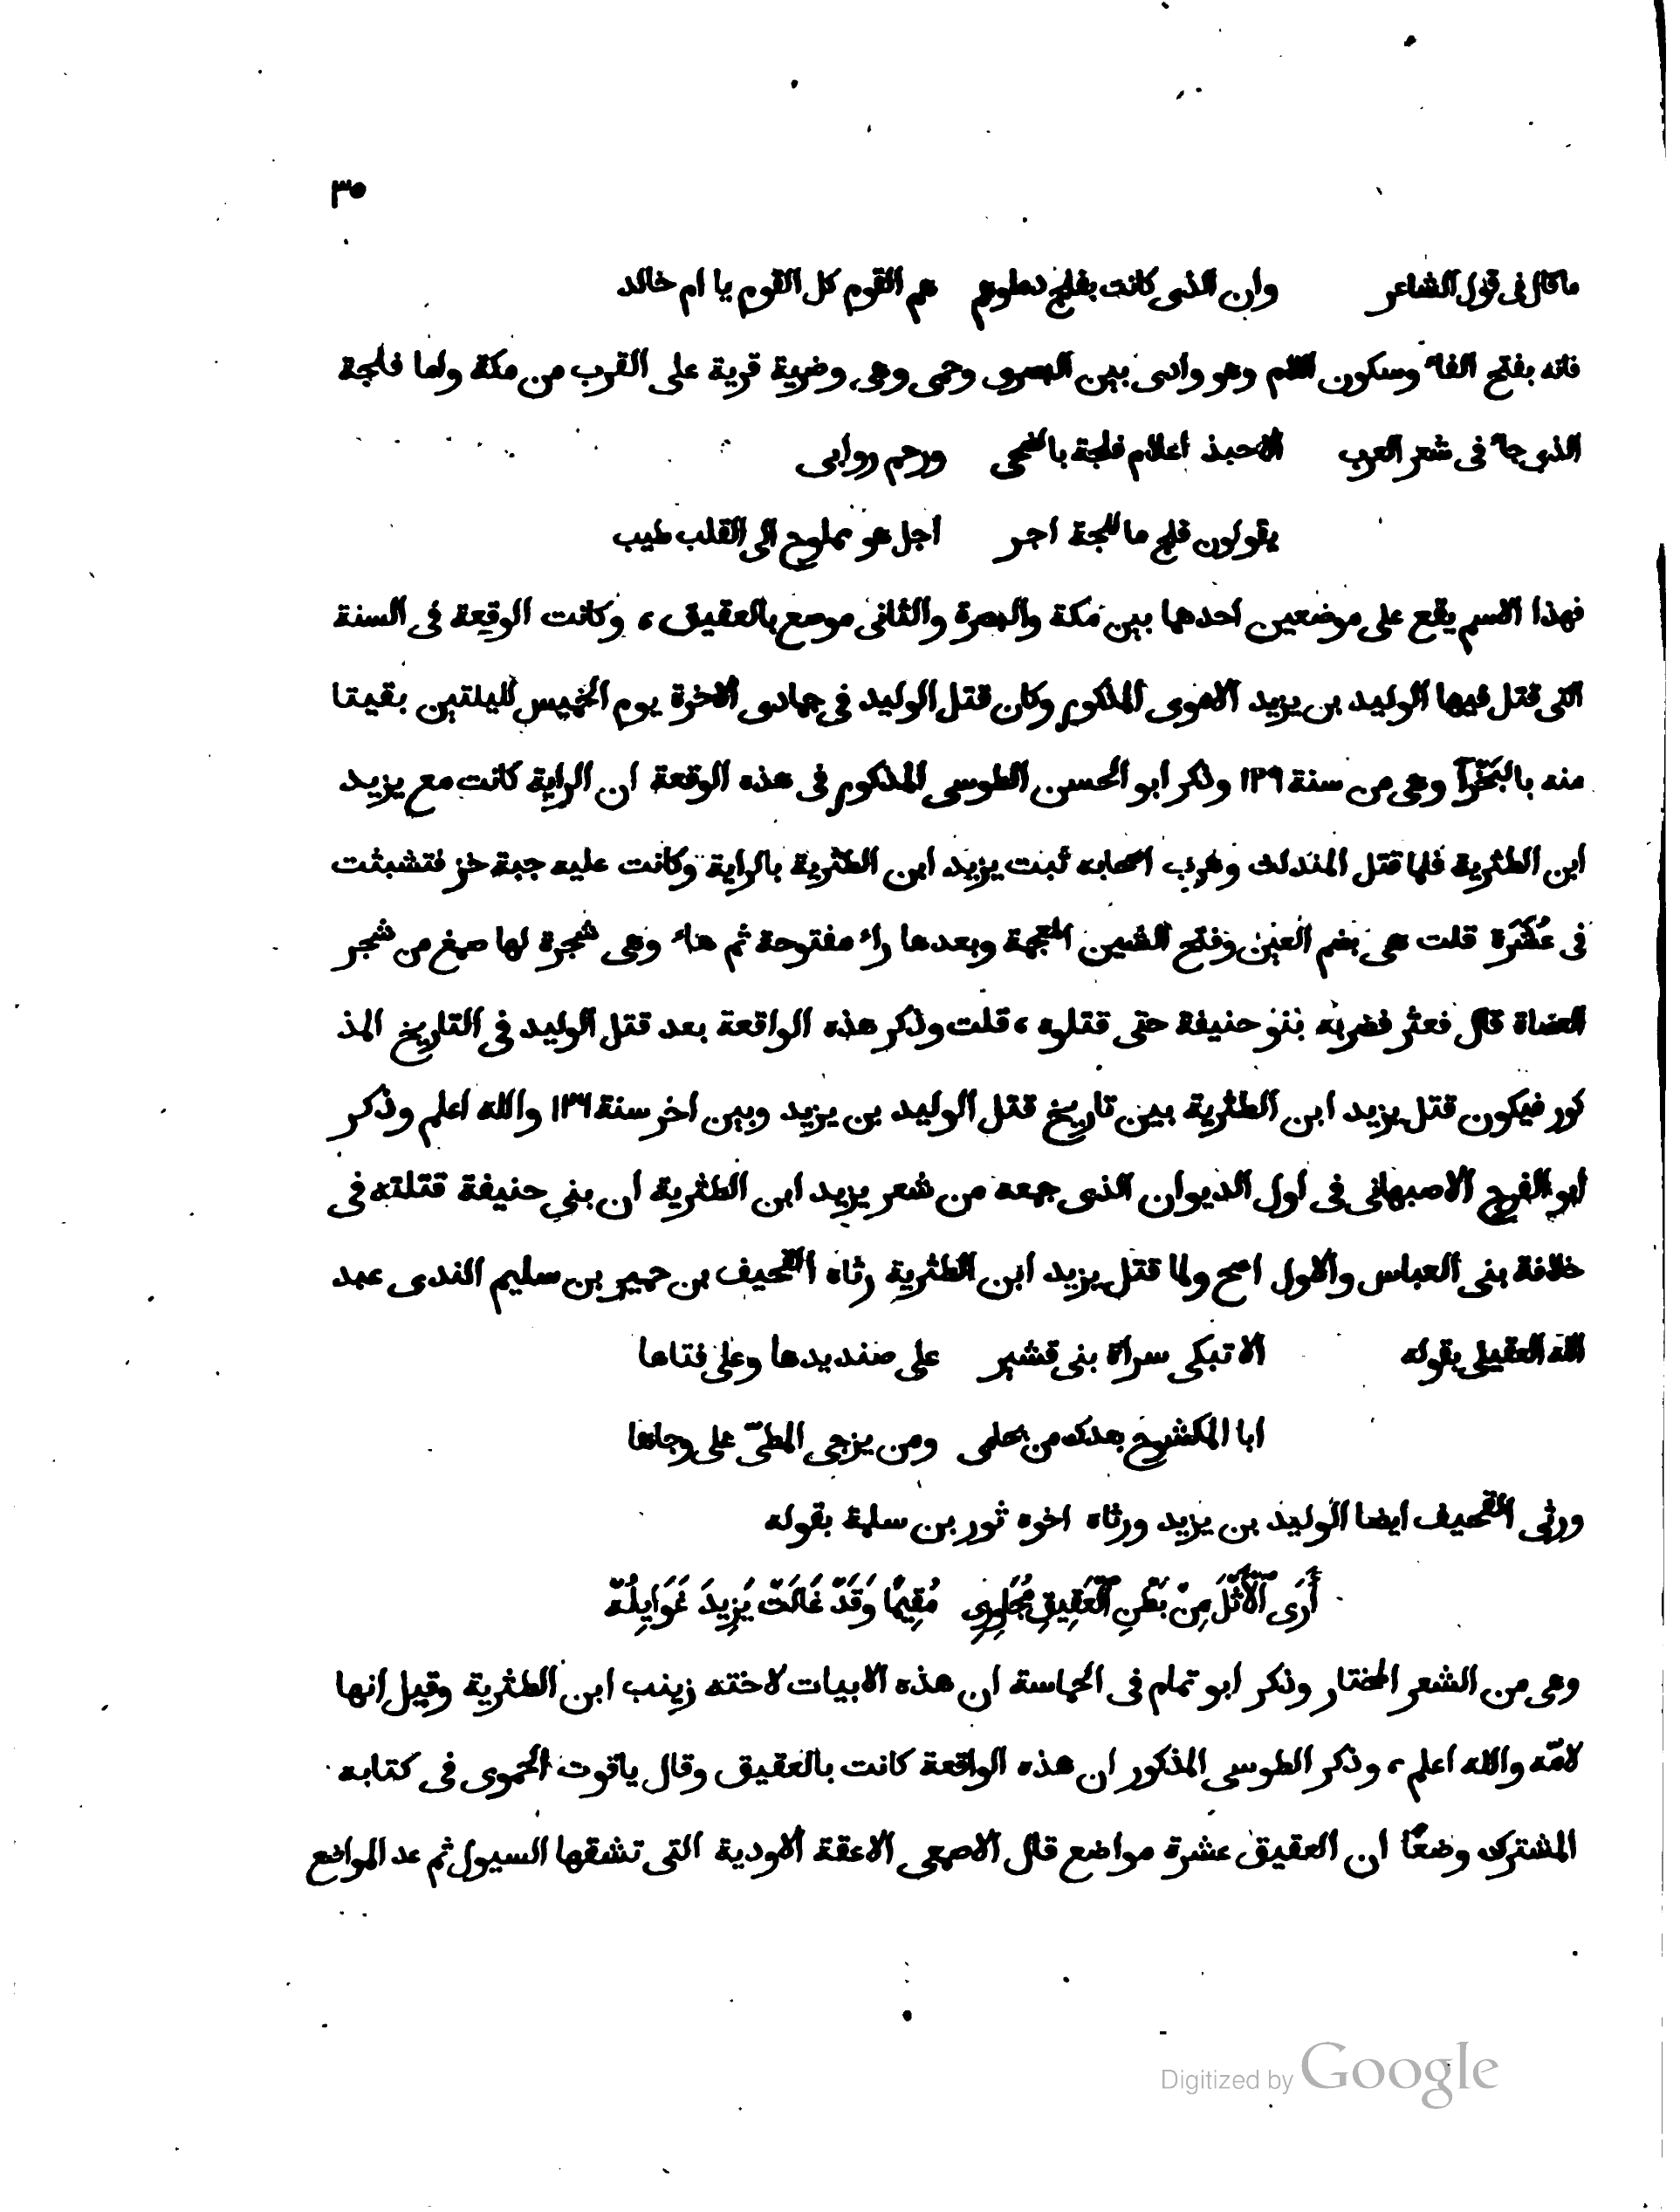 ٣٥
ماقال فى قول الشاعر وان الذى كانت بفلج دماوهم هم القوم كل القوم يا ام خالد
فانه بفتح الفاء وسكون اللام وهو وادى بين البصرو وحمى وهى وضرية قرية على القرب من مكة واما فلجة
الذى جاء فى شعر العرب الاحبذ اعلام فلجة بالضحى ورحم روابى
يقولون فلج ما للجة اجر اجل هو مملوح الى القلب طيب
فهذا الاسم يقع على موضعين احدهما بين مكة والبصرة والثانى موصع بالعقيق، وكانت الوقعة فى السنة
التى قتل فيها الوليد بن يزيد الاموى المذكور وكان قتل الوليد فى جمادى الاخرة يوم الخميس لليلتين بقيتا
منه بالبَخْرَآ وهى من سنة ١٢٩ وذكر ابو الحسن الطوسى المذكور فى هذه الوقعة ان الراية كانت مع يزيد
ابن الطثرية فلما قتل المندلث وهرب اصحابه ثبت يزيد ابن الطثرية بالراية وكانت عليه جبة خز فتشبثت
فى عُشَرَة قلت هى بضم العين وفتح الشين المعجمة وبعدها راء مفتوحة ثم هاء وهى شجرة لها صمغ من شجر
العضاة قال فعثر فضربه بنو حنيفة حتى قتلوه، قلت وذكر هذه الواقعة بعد قتل الوليد فى التاريخ المذ
كور فيكون قتل يزيد ابن الطثرية بين تاريخ قتل الوليد بن يزيد وبين اخر سنة ١٢٦ والله اعلم وذكر
ابو الفرج الاصبهانى فى اول الديوان الذى جمعه من شعر يزيد ابن الطثرية ان بنى حنيفة قتلته فى
خلافة بنى العباس والاول اصح ولما قتل يزيد ابن الطثرية رثاه القحيف بن حمير بن سليم الندى عبد
الله العقيلى بقوله الا تبكى سراة بنى قشير على صنديدها وعلى فتاها
ابا المكشوح بعدك من يحامى ومن يزجى المطىّ على وجاها
ورثى القحيف ايضا الوليد بن يزيد ورثاه اخوه ثور بن سلمة بقوله
أَرَى الْأَثْلَ مِنْ بَطْنِ الْعَقِيقِ مُجَاوِرِى مُقِيمًا وَقَدْ غَالَتْ يَزِيدَ غَوَايِلُهْ
وهى من الشعر المختار وذكر ابو تمام فى الحماسة ان هذه الابيات لاخته زينب ابن الطثرية وقيل انها
لامّه والله اعلم، وذكر الطوسى المذكور ان هذه الواقعة كانت بالعقيق وقال ياقوت الحموى فى كتابه
المشترك وضعًا ان العقيق عشرة مواضع قال الاصمعى الاعقة الاودية التى تشقها السيول ثم عد المواضع
Digitized by Google